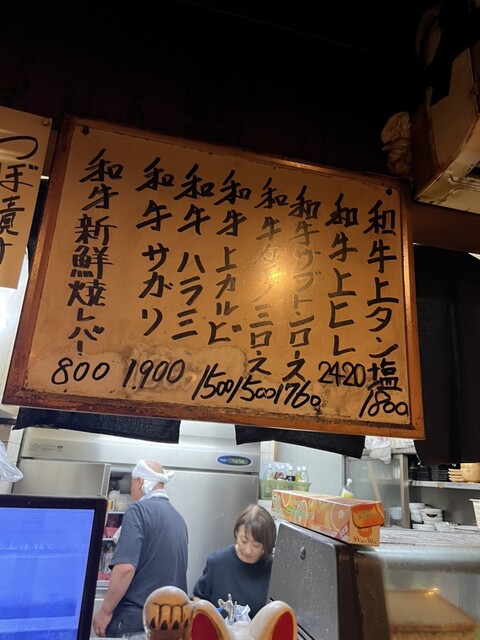 和牛上タン塩 1800
和牛上ヒレ 2420
和牛ウブトンロネス 1760
和牛上カルビ 1500
和牛ハラミ 1500
和牛サガリ 1,900
和牛新鮮焼レバー 800
つぼ漬け